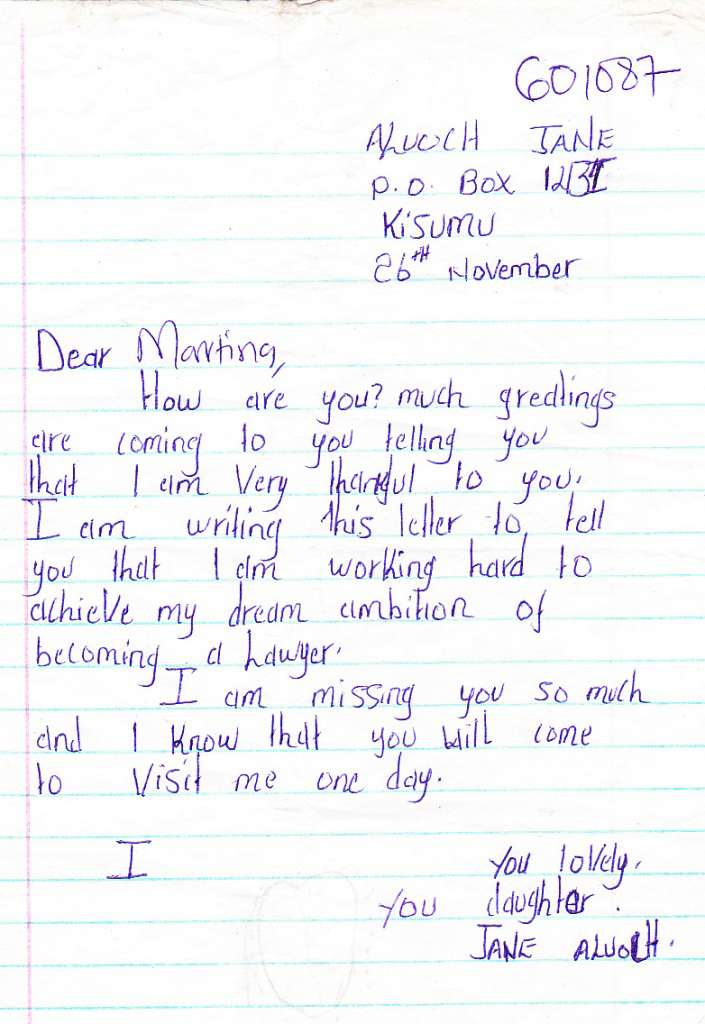 601087
ALUOCH JANE
P.O. BOX
KiSUMU
26th November
Dear Martina,
How are you? much gredtings
are coming to you telling you
that I am Very thankful to you.
I am writing this letter to tell
you that I am working hard to
achieve my dream ambition of
becoming a Lawyer.
I am missing you so much
and I know that you will come
to visit me one day.
I You lovely.
You daughter.
JANE ALUOCH.